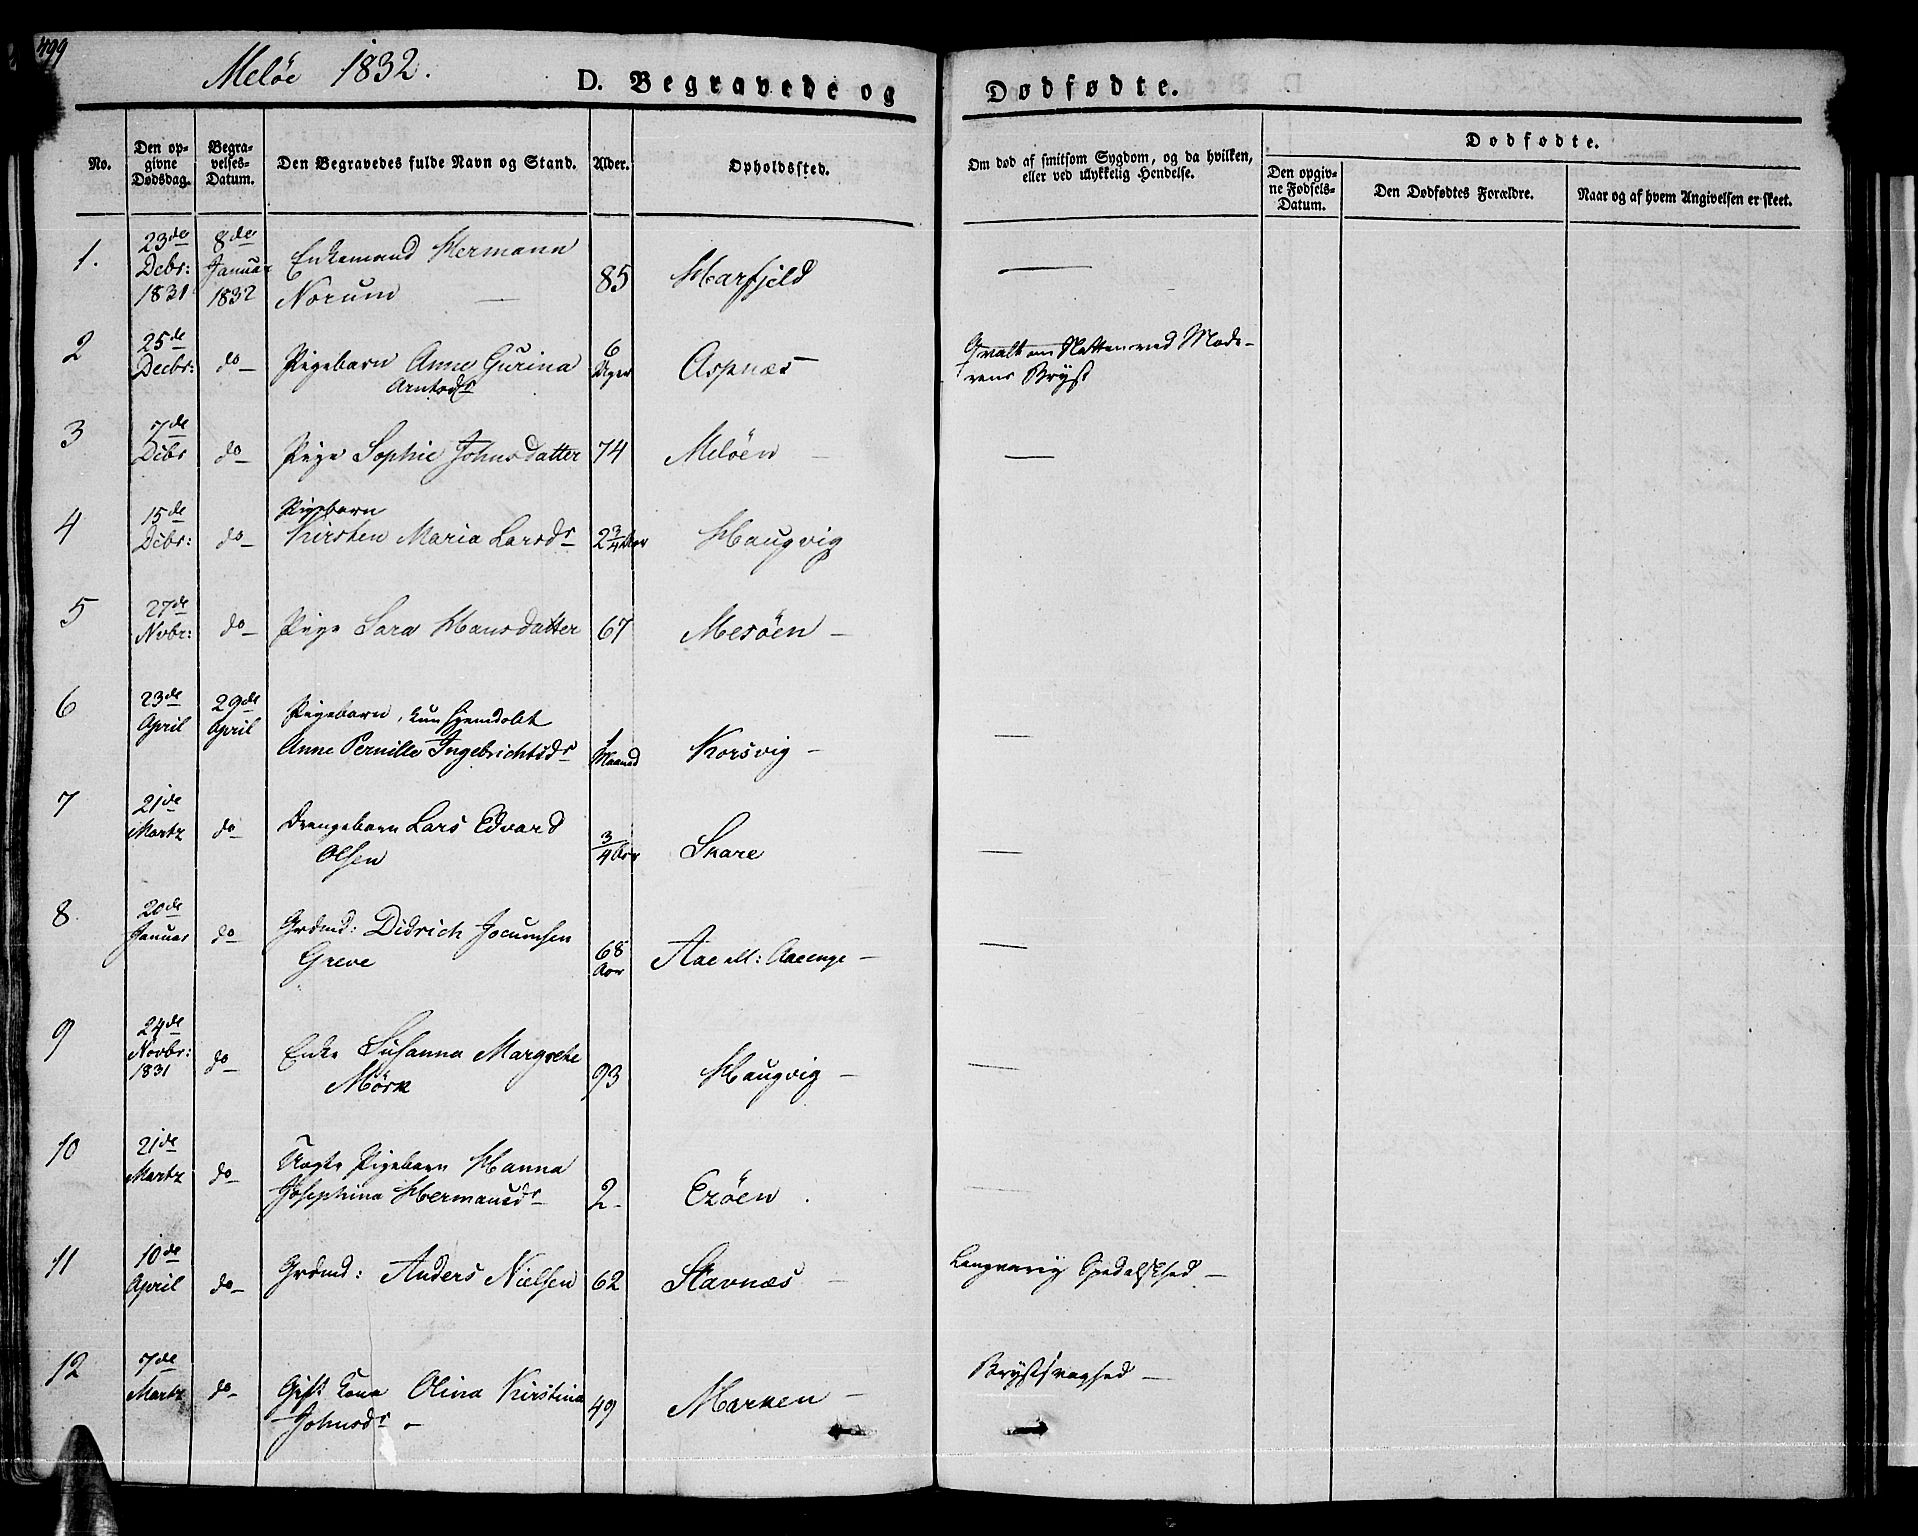 499
Meløe 1832.
D. Begravede og Dødfødte.
No.
Den opgivne Dødsdag.
Begravelses-Datum.
Den Begravedes fulde Navn og Stand.
Alder.
Opholdssted.
Om død af smitsom Sygdom, og da hvilken, eller ved ulykkelig Hendelse.
Dødfødte.
Den opgivne Fødsels-Datum.
Den Dødfødtes Forældre.
Naar og af hvem Angivelsen er skeet.
1. 23de Decbr: 1831 8de Januar 1832 Enkemand Hermann
Norum — 85 Harfjeld —
2 25de Decbr: do Pigebarn Anne Gurina
Arntsdr 6 Uger Aspnæs — Qvalt om Natten ved Mode-
rens Bryst
3 7de Dcbr do Pige Sophie Johnsdatter 74 Meløen — —
4 15de Dcbr: do Pigebarn
Kirsten Maria Larsdr 2 3/4 Aar Haugvig
5 27de Nvbr: do Pige Sara Hansdatter 67 Mesøen —
6 23de April 29de April Pigebarn, kun hjemdøbt
Anne Pernille Ingebrichtsdr 1 Maaned Korsvig — —
7 21de Martz do Drengebarn Lars Edvard
Olsen 3/4 Aar Skare —
8 20de Januar do Grdmd: Didrich Jocumsen
Greve 68 Aar Aae ell: Aaeenge — —
9 24de Novbr: 1831 do Enke Susanna Margrethe
Mörk 93 Haugvig — —
10 21de Martz do Uægte Pigebarn Hanna
Josephina Hermansdr 2 Ezøen. —
11 10de April do Grdmd: Anders Nielsen 62 Stavnæs — Langvarig Spedalskhed —
12 7de Martz do Gift Kone Olina Kirstina
Johnsdr 49 Marken — Brystsvaghed —